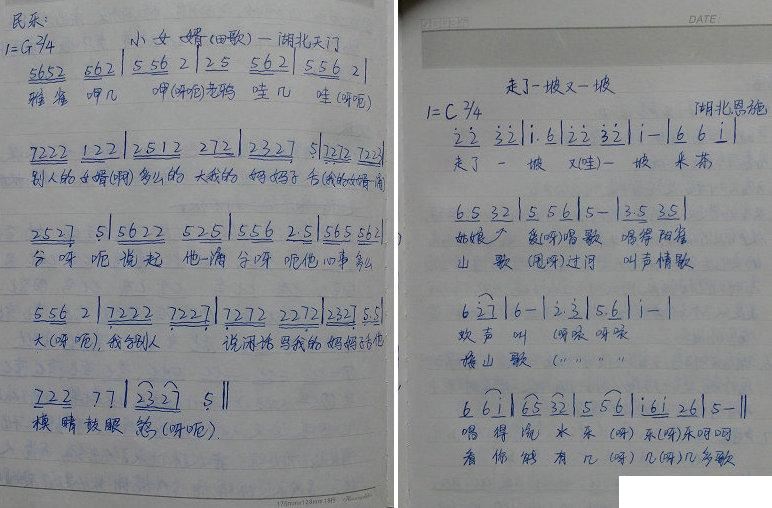 民乐:
小女婿(田歌)—湖北天门
1=G 2/4
5652 562 | 5 56 2 | 2 5 562 | 5 56 2 |
雅雀 呷几 呷(呀呃)老鸦 哇几 哇(呀呃)
7222 122 | 2512 272 | 2327 5 | 7272 7222 |
别人的女婿(啊)多么的 大我的 妈妈子 舌(我的女婿 满
2527 5 | 5622 525 | 556 2·5 | 565 562 |
呀 呃 说起 他一满 呀 呃他 心事 多么
556 2 | 7222 7227 | 7272 2272 | 2327 5.5 |
大(呀呃), 我与别人 说闲话 骂我的 妈妈子
722 77 | 2327 5 ||
模睛鼓眼 (呀呃).
176mm×128mm
DATE:
走了一坡又一坡
1=C 2/4 湖北恩施
22 32 | i·6 | 22 32 | i — | 6 6 i |
走了一坡 又(哇)一坡 采茶
65 32 | 5 5 6 | 5 — | 3·5 35 |
姑娘 爱(呀)唱歌 唱得阳雀
山 歌 (甩呀)过河 叫声情歌
6 27 | 6 — | 2·3 | 5.6 | i — |
欢声叫 (呀咳呀咳
接山歌 (〃 〃 〃 〃
6 6i | 65 32 | 5 56 | i6i 26 | 5 — ||
唱得流水乐(呀)乐(呀)乐呵呵
看你能有几(呀)几(呀)几多歌